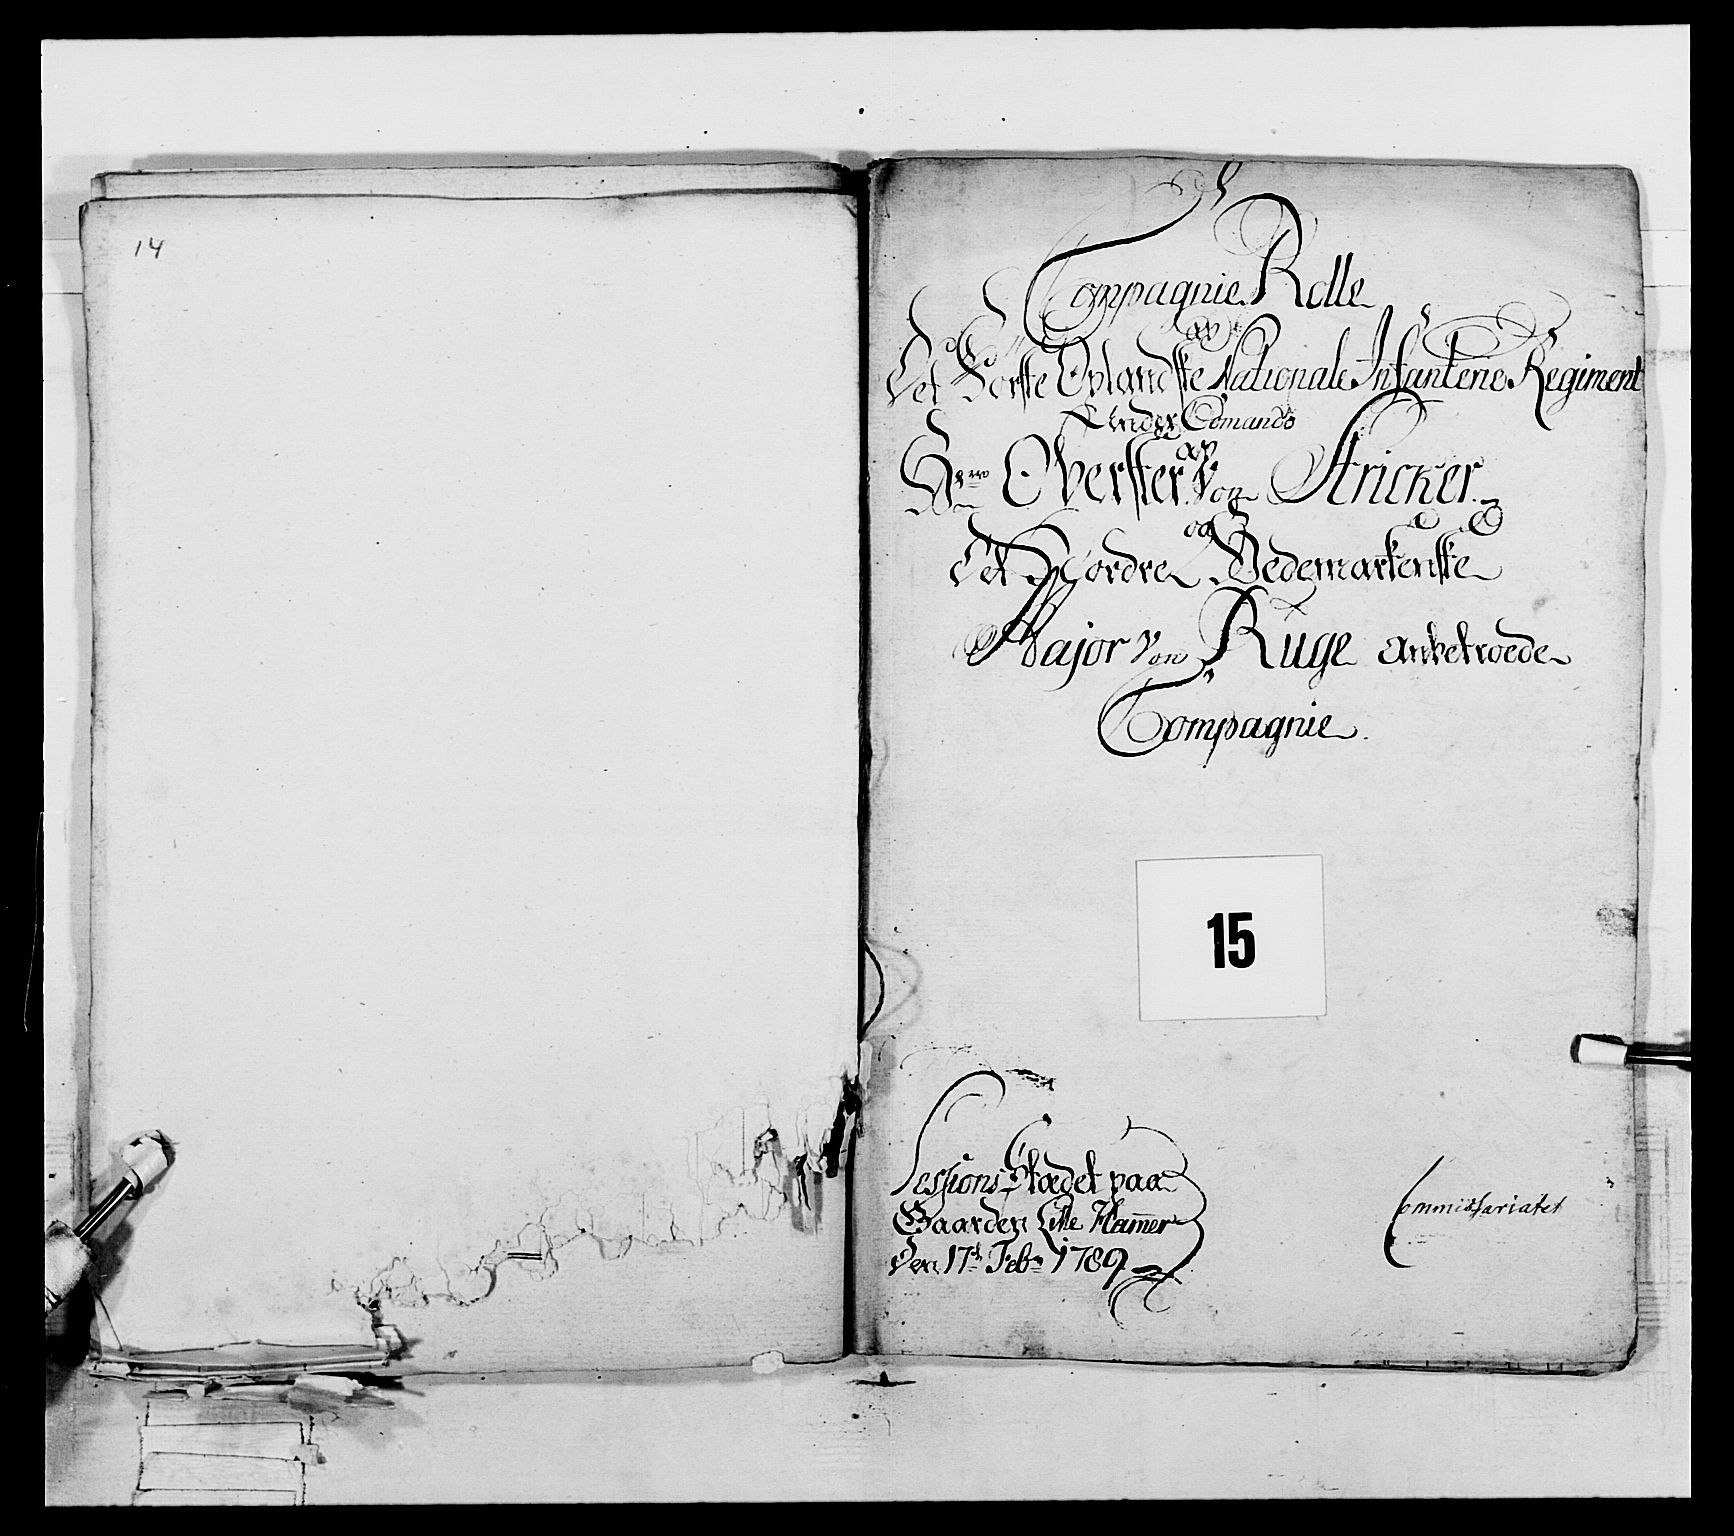 14
Compagnie Rolle
av
Det Første Oplandske Nationale Infanterie Regiment
Under Comando
av
Hrr Oberster Von Stricker
og
Det Nordre Hedemarkenske
Major Von Ruge anbetroede
Compagnie.
15
Sessions Stædet paa
Gaarden Lille Hamer
Den 17d Febr 1789
Commissariatet